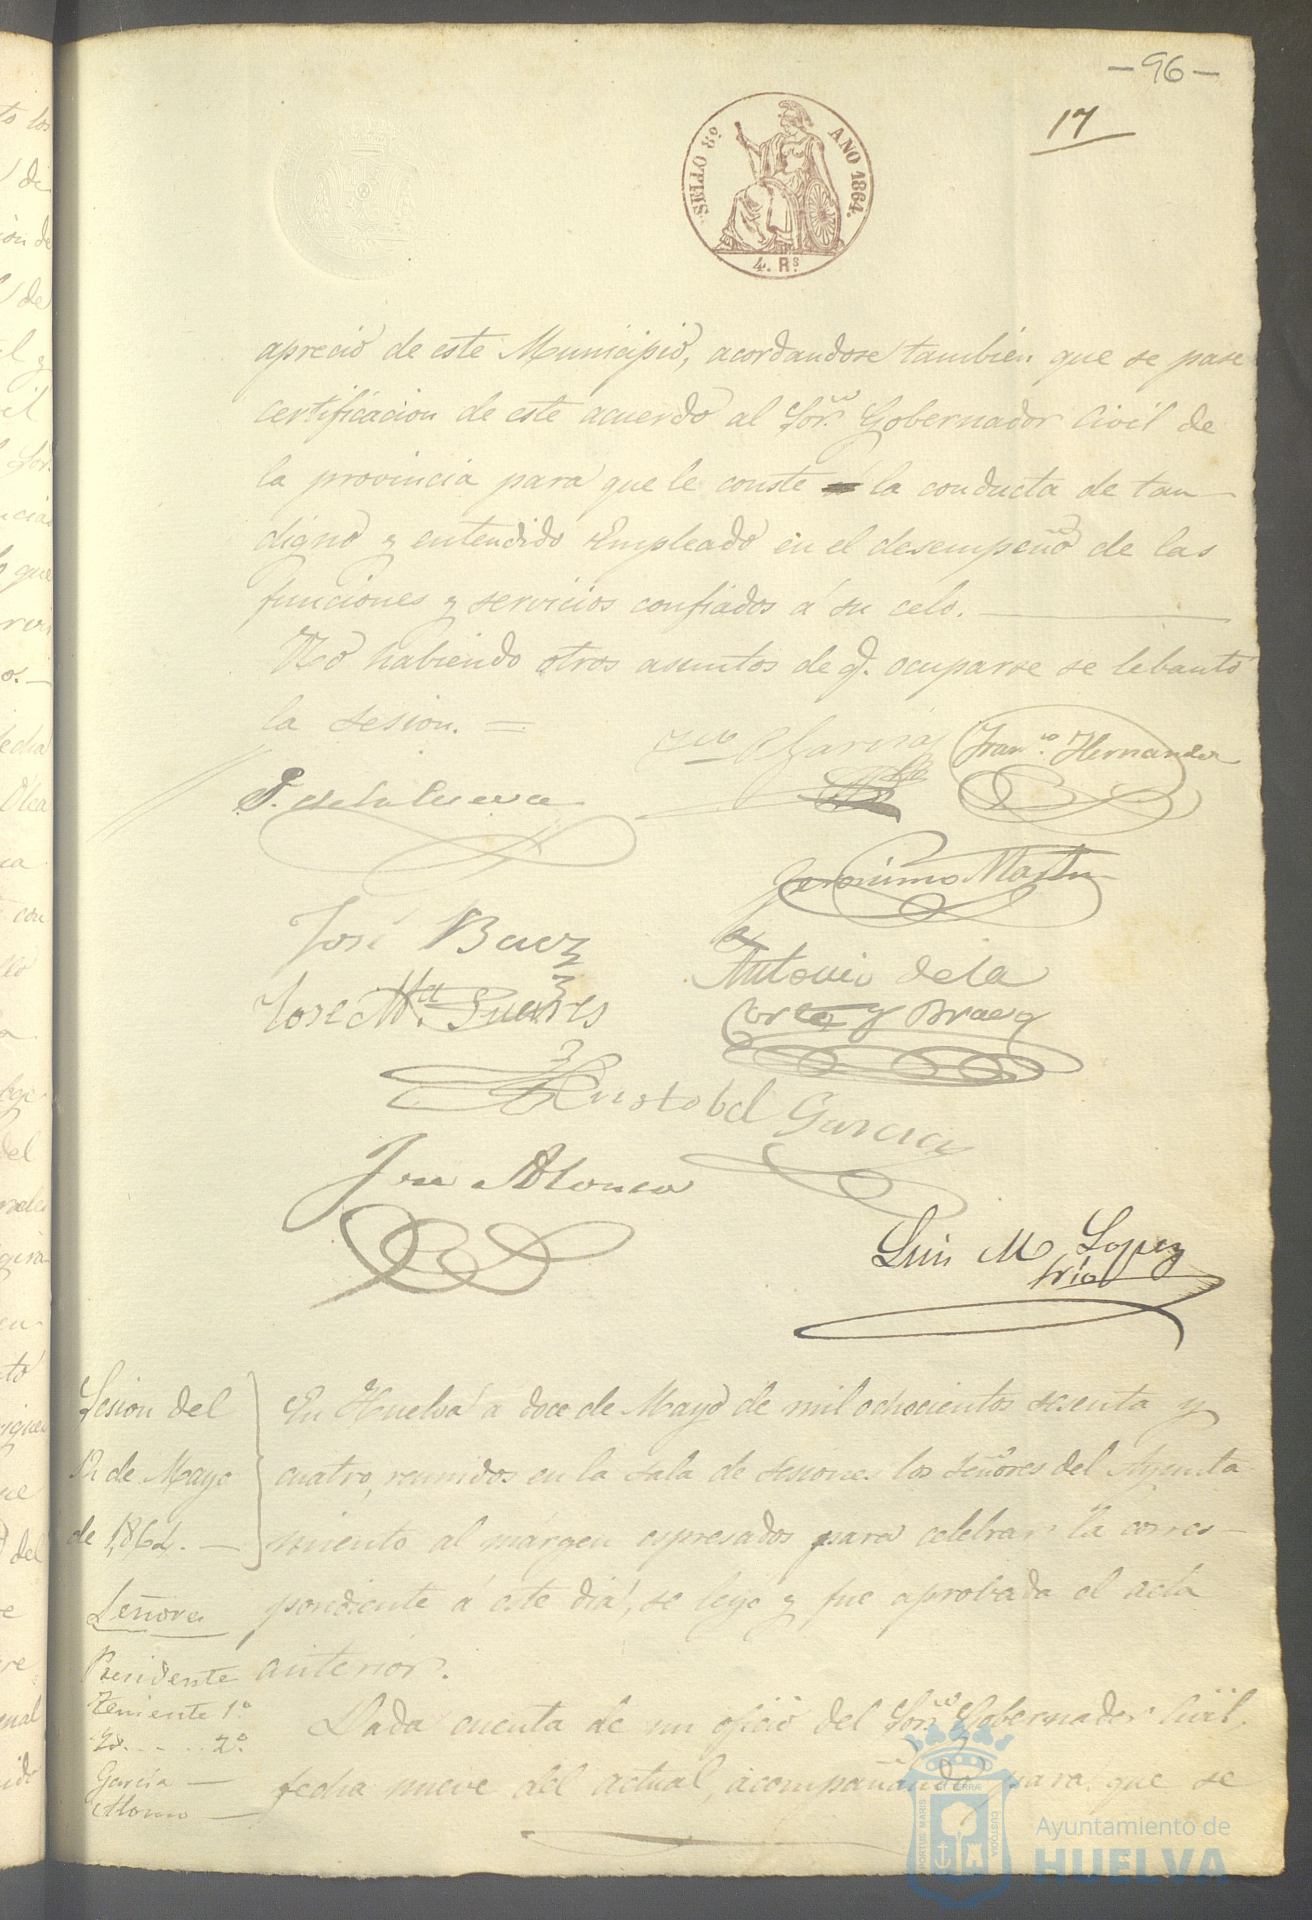 -96-
17
SELLO 8º AÑO 1864.
4. Rs
aprecio de este Municipio, acordandose tambien que se pase
certificacion de este acuerdo al Sor. Gobernador Civil de
la provincia para que le conste la conducta de tan
digno y entendido Empleado en el desempeño de las
funciones y servicios confiados á su celo.
No habiendo otros asuntos de q. ocuparse se lebantó
la sesion. =
Garcia
Franco. Hernandez
P. de la Cueva
Jeronimo Martin
José Baez
Antonio de la
Jose Ma. Suares
Corte y Braeq
Cristobal Garcia
Jose Alonso
Luis M Lopez
Srio
Sesion del
12 de Mayo
de 1,864. —
En Huelva á doce de Mayo de mil ochocientos sesenta y
cuatro, reunidos en la sala de sesiones los señores del Ayunta-
miento al márgen espresados para celebrar la corres-
pondiente á este dia, se leyo y fue aprobada el acta
anterior.
Señores
Presidente
Teniente 1º
Yd. . . . . 2º
García —
Alonso —
Dada cuenta de un oficio del Sor. Gobernador Civil,
fecha nueve del actual, acompañando para que se
PORTUS MARIS ET TERRAE CUSTODIA
Ayuntamiento de
HUELVA